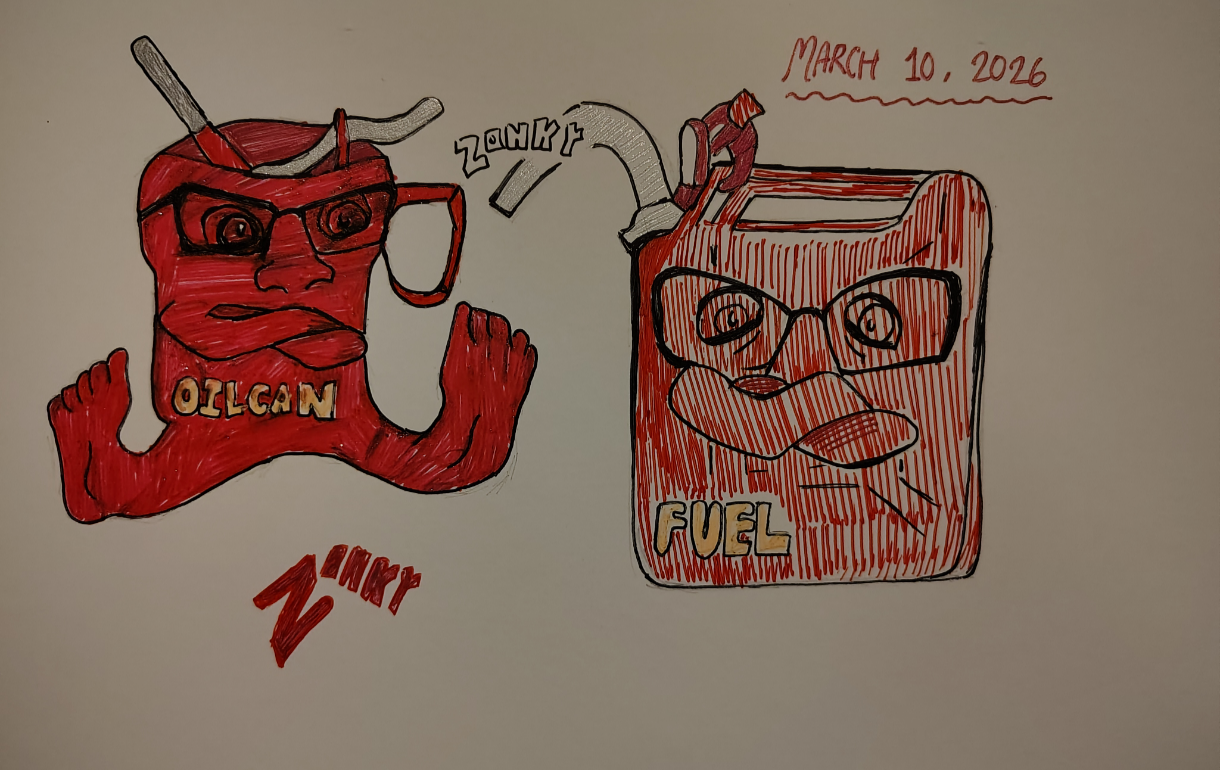 MARCH 10, 2026
ZONKY
OILCAN
FUEL
ZONKY